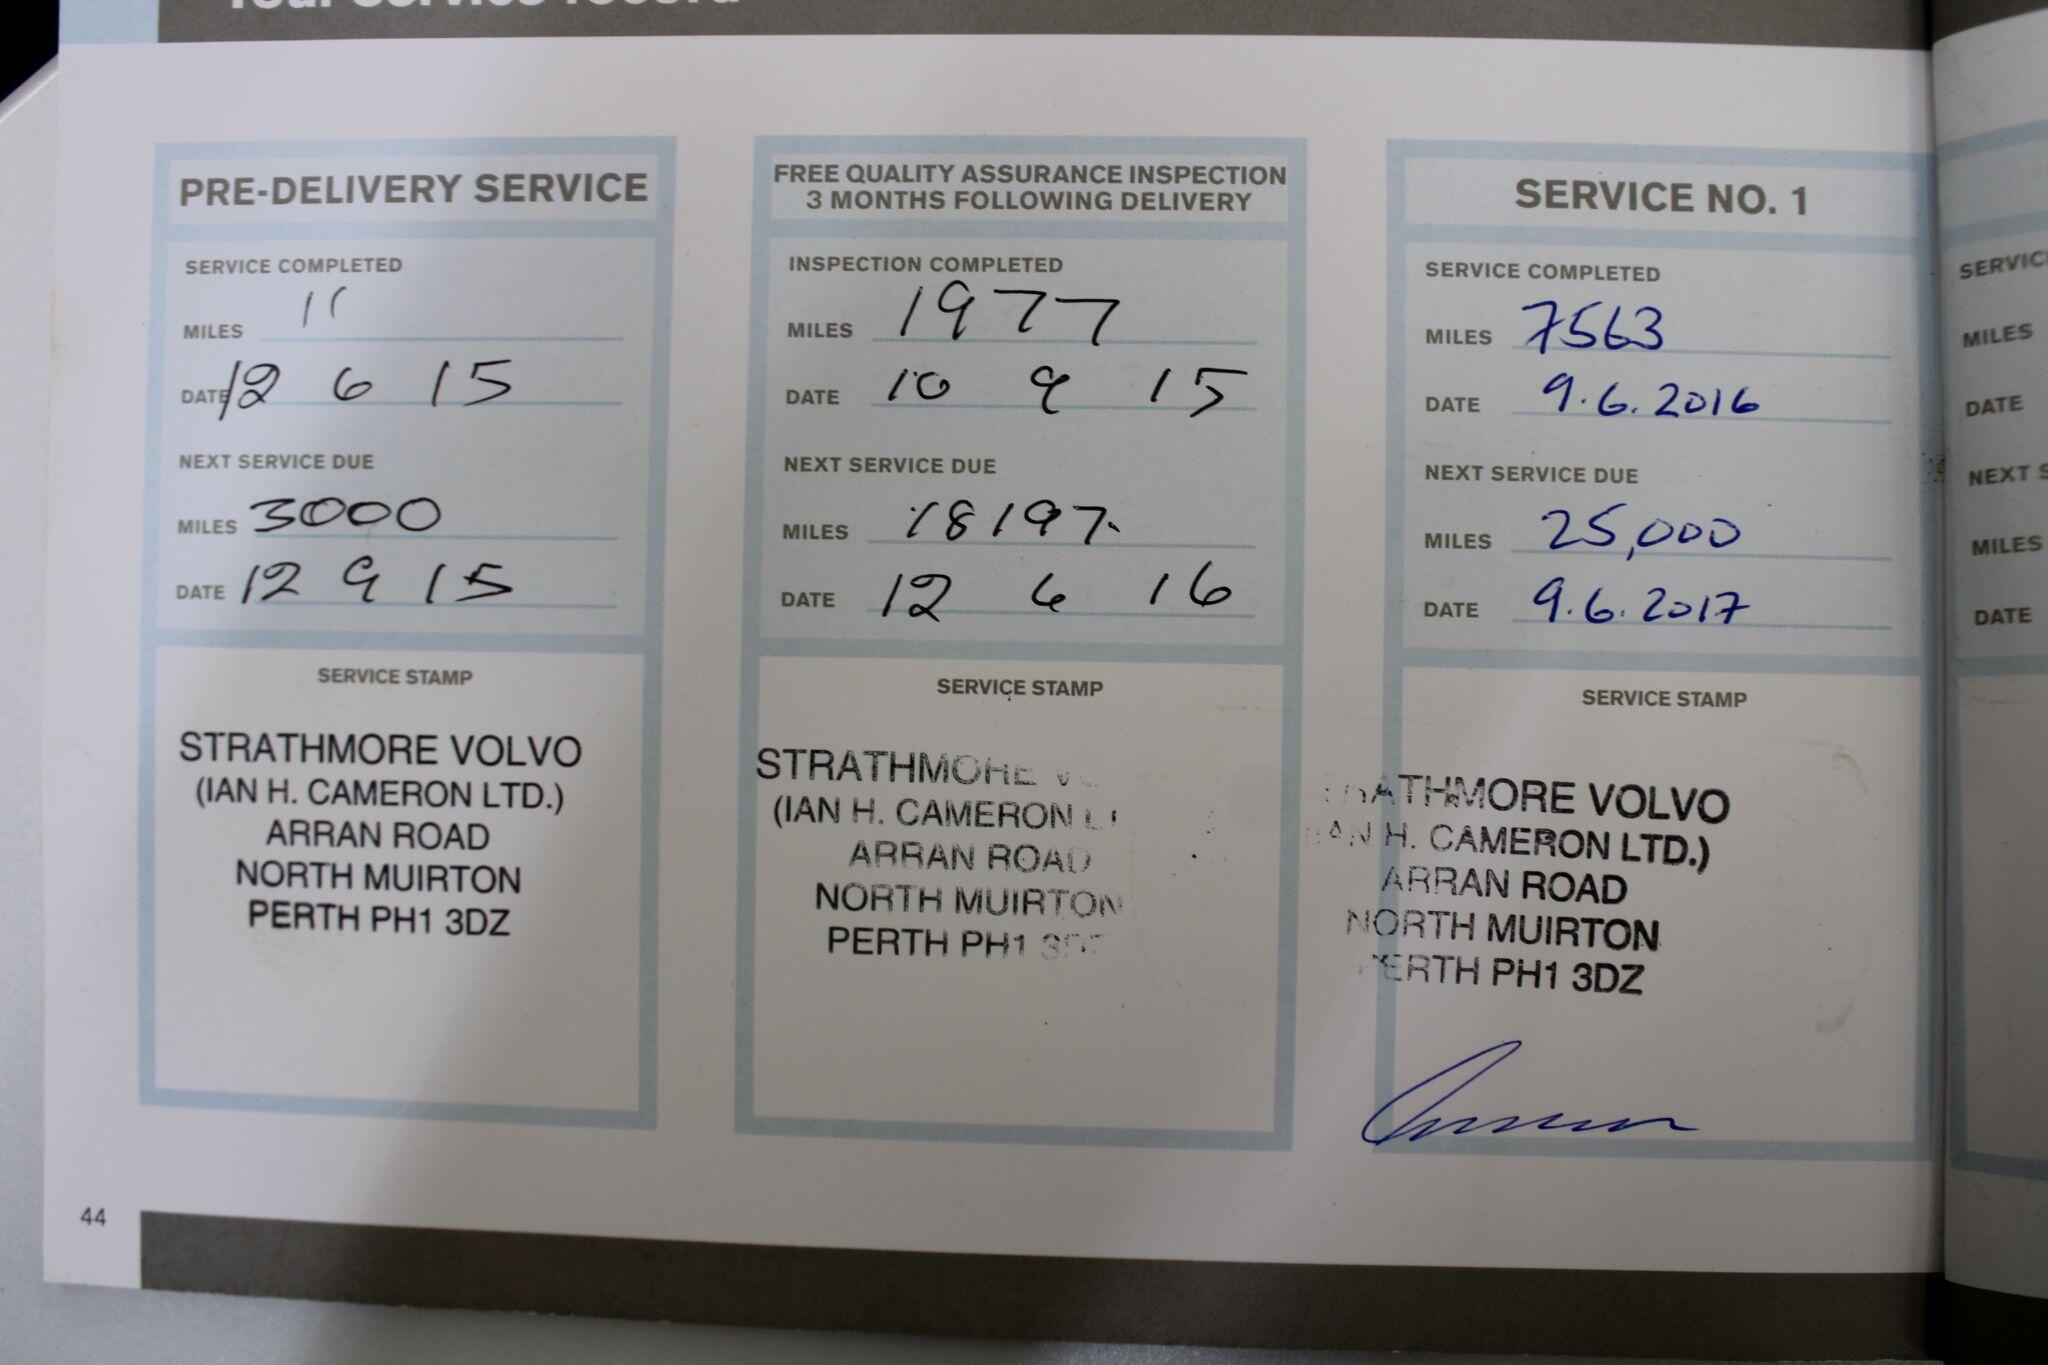 Your service record
PRE-DELIVERY SERVICE
SERVICE COMPLETED
MILES 11
DATE 12 6 15
NEXT SERVICE DUE
MILES 3000
DATE 12 9 15
SERVICE STAMP
STRATHMORE VOLVO
(IAN H. CAMERON LTD.)
ARRAN ROAD
NORTH MUIRTON
PERTH PH1 3DZ
FREE QUALITY ASSURANCE INSPECTION
3 MONTHS FOLLOWING DELIVERY
INSPECTION COMPLETED
MILES 1977
DATE 10 9 15
NEXT SERVICE DUE
MILES 18197
DATE 12 6 16
SERVICE STAMP
STRATHMORE
(IAN H. CAMERON
ARRAN ROAD
NORTH MUIRTON
PERTH PH1
SERVICE NO. 1
SERVICE COMPLETED
MILES 7563
DATE 9.6.2016
NEXT SERVICE DUE
MILES 25,000
DATE 9.6.2017
SERVICE STAMP
STRATHMORE VOLVO
H. CAMERON LTD.)
ARRAN ROAD
NORTH MUIRTON
PERTH PH1 3DZ
MILES
DATE
NEXT
MILES
DATE
44